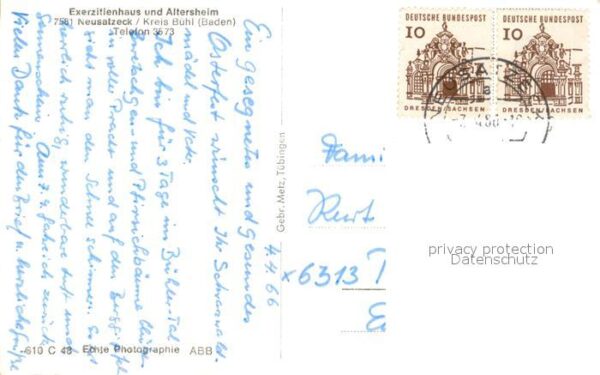 Exerzitienhaus und Altersheim
7581 Neusatzeck / Kreis Bühl (Baden)
Telefon 3573
4.4.66
Ein gesegnetes und gesundes
Osterfest wünscht Ihr Schwarzwald-
mädel und
Ich bin für 3 Tage im Bühlertal
Zwetschgen- und Pfirsichbäume blühen
in voller Pracht und auf den Berggipfel
sieht man den Schnee schimmern. Es ist
herrlich ruhig, wunderbare Luft und
Sonnenschein. Am 7.4. fahre ich zurück.
Vielen Dank für den Brief u. herzliche Grüße
610 C 48 Echte Photographie ABB
Gebr. Metz, Tübingen
DEUTSCHE BUNDESPOST
10
DRESDEN/SACHSEN
DEUTSCHE BUNDESPOST
10
DRESDEN/SACHSEN
NEUSATZECK
a
Fami
Kurt
x6313
privacy protection
Datenschutz